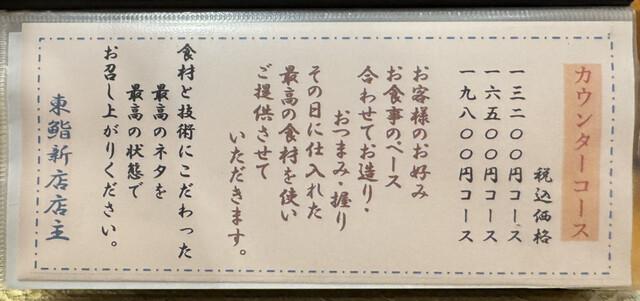 カウンターコース
税込価格
一三二〇〇円コース
一六五〇〇円コース
一九八〇〇円コース
お客様のお好み
お食事のペース
合わせてお造り・
おつまみ・握り
その日に仕入れた
最高の食材を使い
ご提供させて
いただきます。
食材と技術にこだわった
最高のネタを
最高の状態で
お召し上がりください。
東鮨新店店主